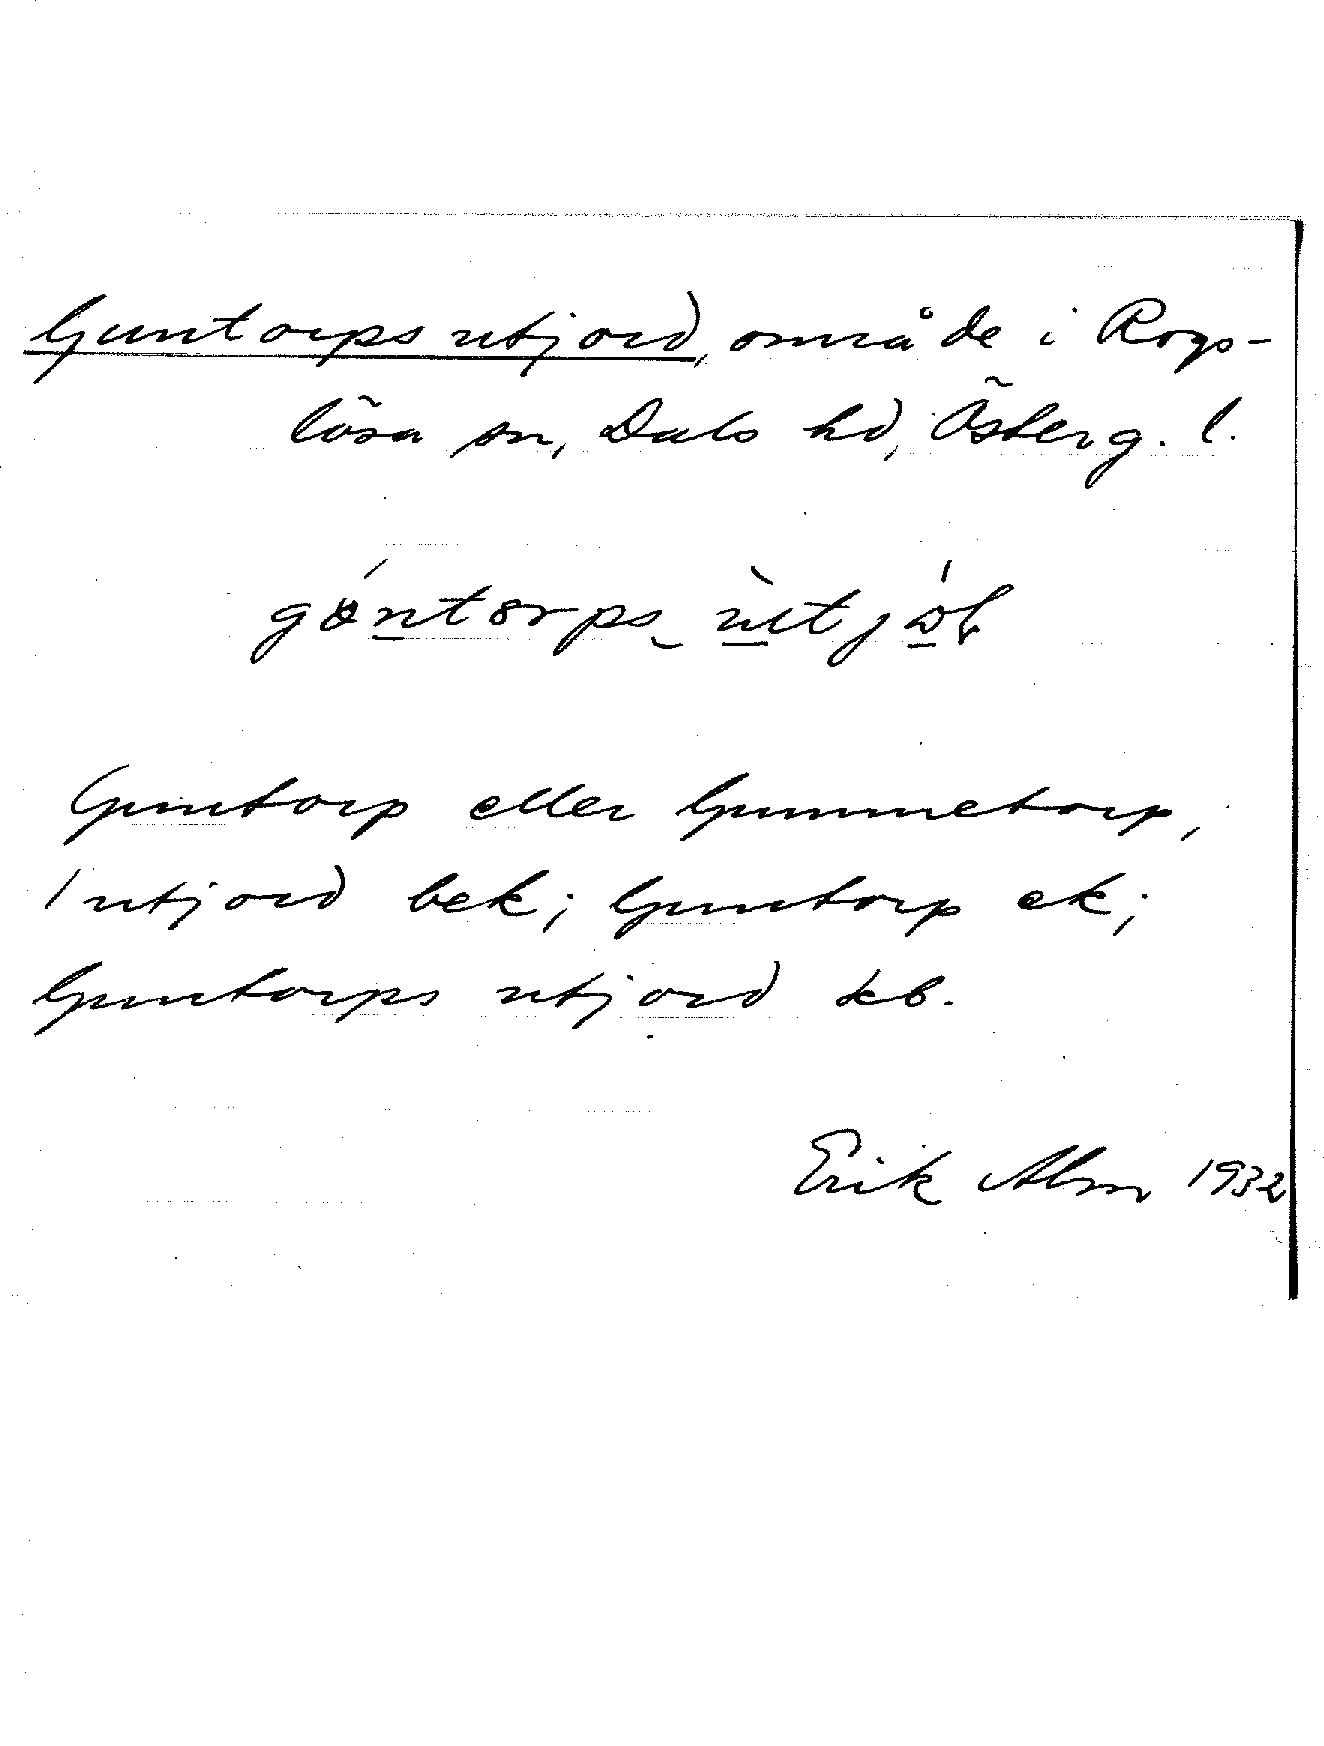 Guntorps utjord, område i Rogs-
lösa sn, Dals hd, Österg. l.
Guntorp eller Gummetorp,
1 utjord bek; Guntorp ek;
Guntorps utjord kb.
Erik Alm 1932